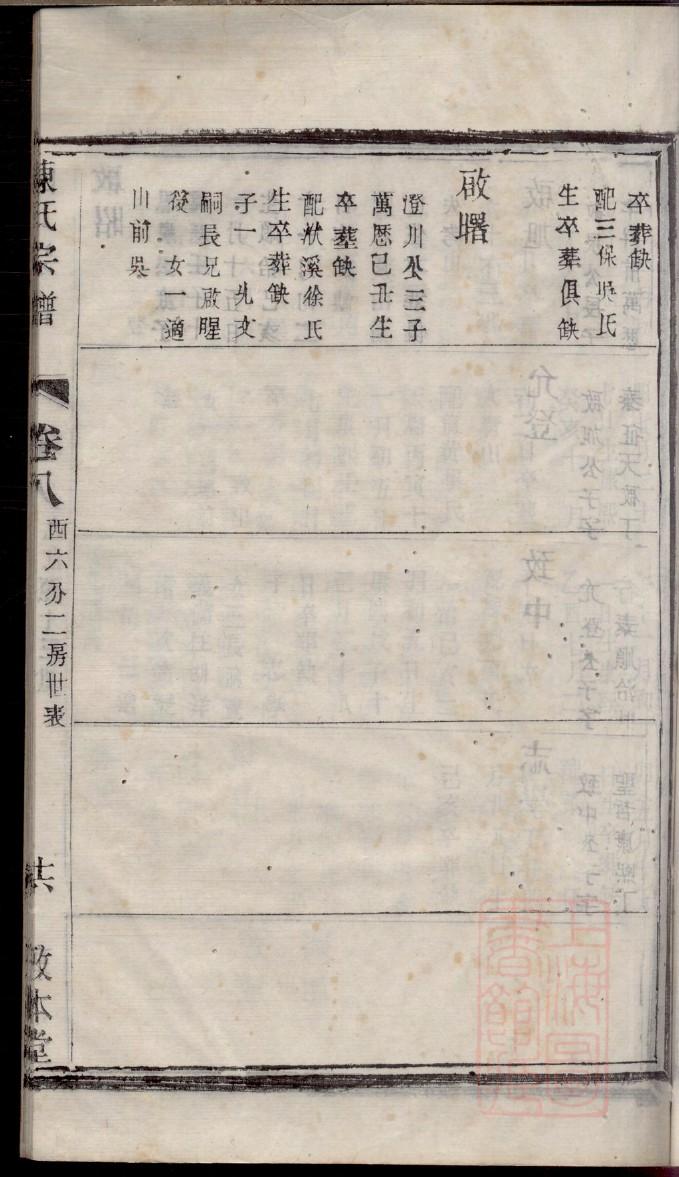 卒葬缺
配三保吳氏
生卒葬俱缺
啟曙
澄川公三子
萬厯己丑生
卒塟缺
配洑溪徐氏
生卒葬缺
子一 允文
嗣長兄啟腥
後 女一適
山前吳
陳氏宗譜
卷八
西六分二房世表
共
敬本堂
上海圖書館藏